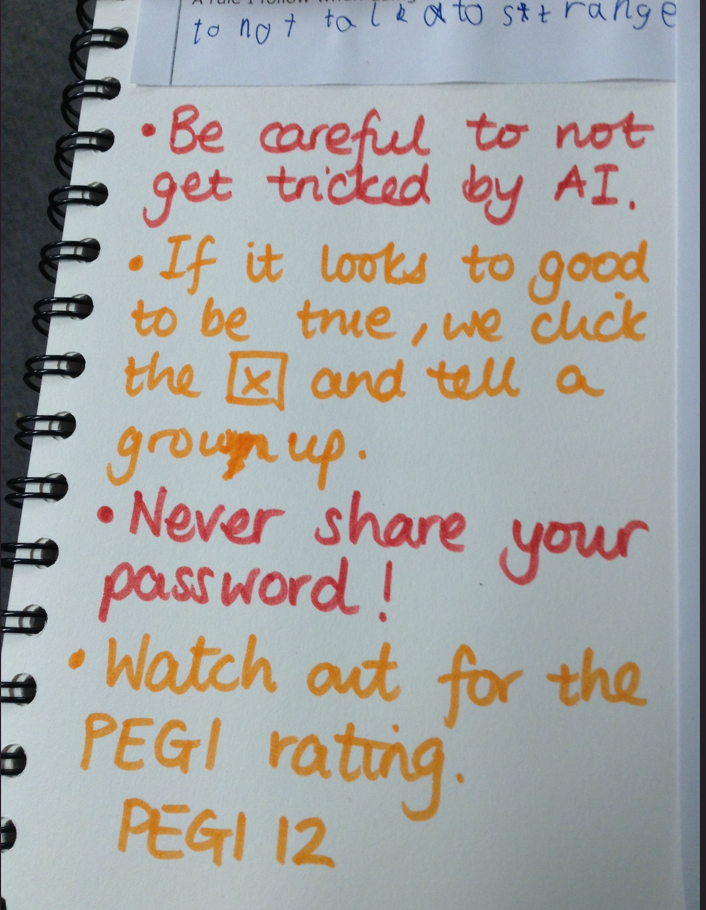 A rule I follow when
to not talk to strange
• Be careful to not
get tricked by AI.
• If it looks to good
to be true, we click
the x and tell a
grown up.
• Never share your
password!
• Watch out for the
PEGI rating.
PEGI 12